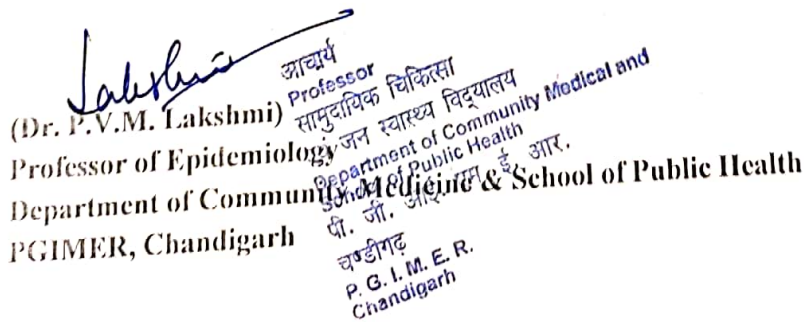 Lakshmi
(Dr. P.V.M. Lakshmi)
Professor of Epidemiology
Department of Community Medicine & School of Public Health
PGIMER, Chandigarh
आचार्य
Professor
सामुदायिक चिकित्सा
जन स्वास्थ्य विद्यालय
Department of Community Medical and
School of Public Health
पी. जी. आई. एम. ई. आर.
चण्डीगढ़
P. G. I. M. E. R.
Chandigarh